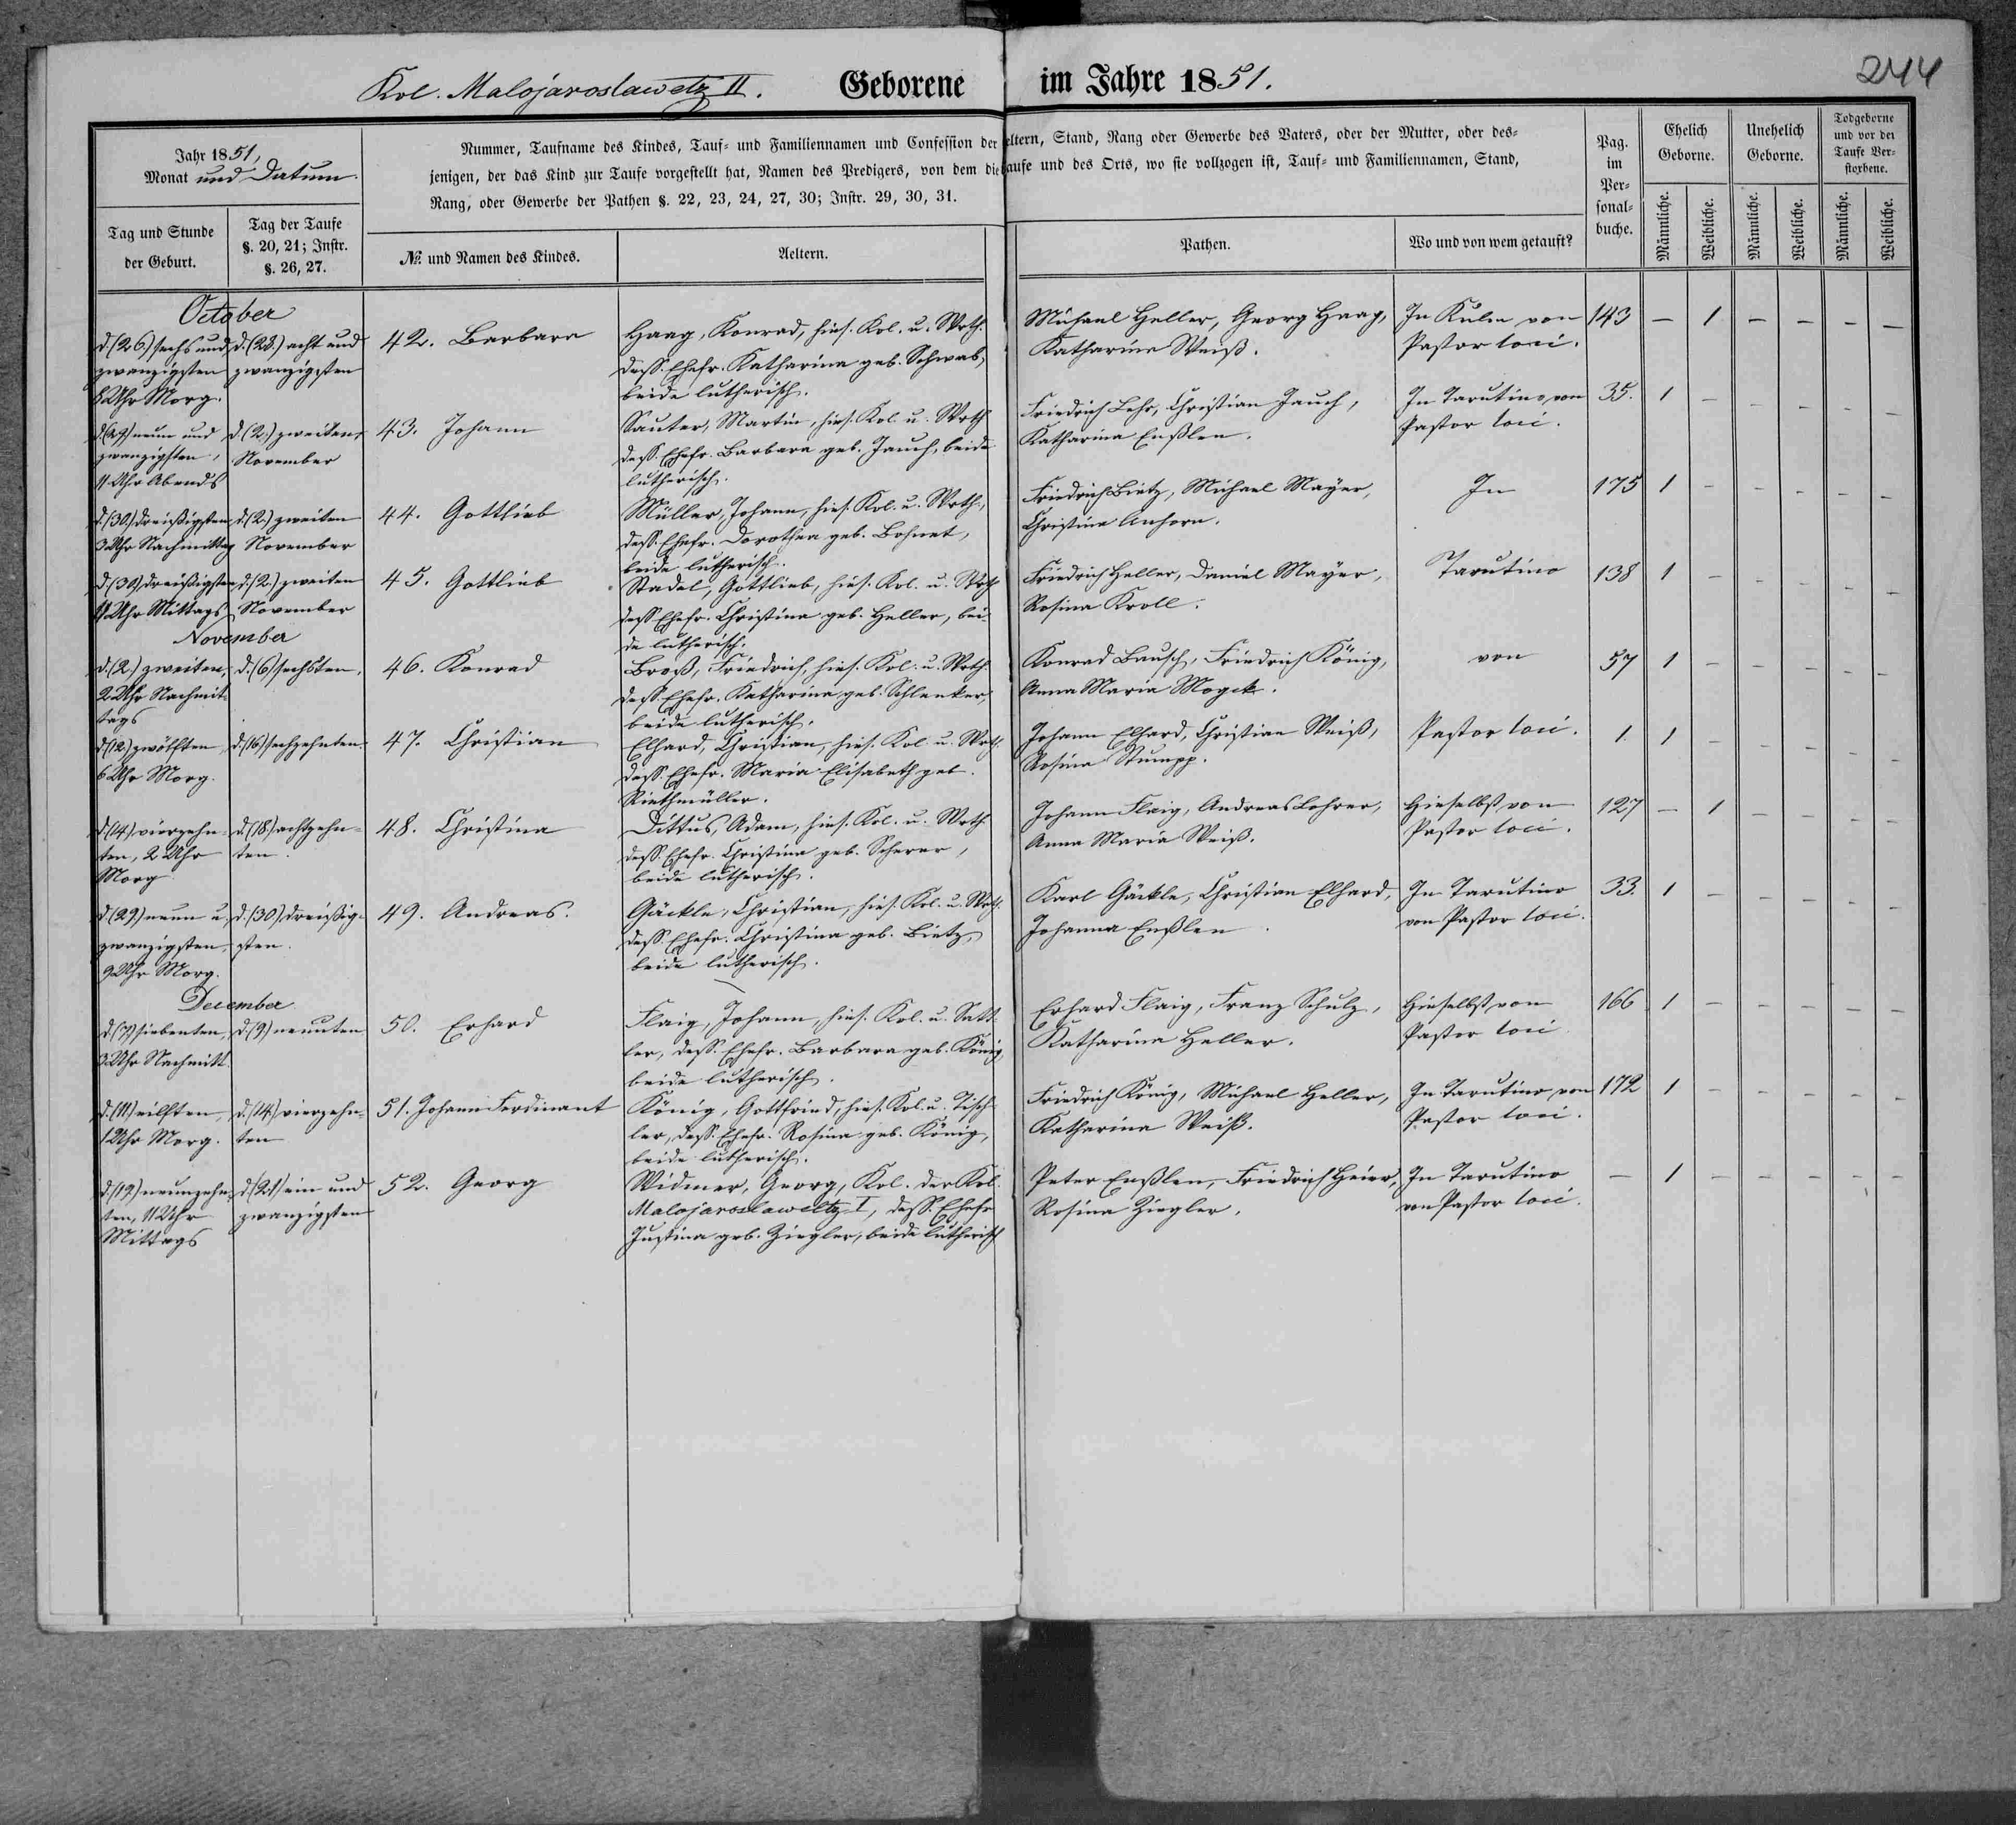 244
Kol. Malojaroslawetz II. Geborene im Jahre 1851.
Jahr 1851,
Monat und Datum.
Tag und Stunde
der Geburt.
Tag der Taufe
§. 20, 21; Instr.
§. 26, 27.
Nummer, Taufname des Kindes, Tauf- und Familiennamen und Confession der Aeltern, Stand, Rang oder Gewerbe des Vaters, oder der Mutter, oder des-
jenigen, der das Kind zur Taufe vorgestellt hat, Namen des Predigers, von dem die Taufe und des Orts, wo sie vollzogen ist, Tauf- und Familiennamen, Stand,
Rang, oder Gewerbe der Pathen §. 22, 23, 24, 27, 30; Instr. 29, 30, 31.
№. und Namen des Kindes.
Aeltern.
Pathen.
Wo und von wem getauft?
Pag.
im
Per-
sonal-
buche.
Ehelich
Geborne.
Unehelich
Geborne.
Todgeborne
und vor der
Taufe Ver-
storbene.
Männliche.
Weibliche.
Männliche.
Weibliche.
Männliche.
Weibliche.
October
d. (26) sechs und
zwanzigsten
Uhr Morg.
d. (28.) acht und
zwanzigsten
42. Barbara
Haag, Konrad, hies. Kol. u. Wrth.
dess. Ehefr. Katharina geb. Schwab,
beide lutherisch.
Michael Heller, Georg Haag,
Katharina Weiß.
In Kulm von
Pastor loci.
143 — 1 — — — —
d. (29) neun und
zwanzigsten,
11 Uhr Abends
d. (2.) zweiten
November
43. Johann
Sauter, Martin, hies. Kol. u. Wrth
dess. Ehefr. Barbara geb. Jauch, beide
lutherisch.
Friedrich Lehr, Christian Jauch,
Katharina Enßlen.
In Tarutino von
Pastor loci.
35. 1 — — — — —
d. (30) dreißigsten
3 Uhr Nachmittag
d. (2) zweiten
November
44. Gottlieb
Müller, Johann, hies. Kol. u. Wrth.,
dess. Ehefr. Dorothea geb. Bohnet,
beide lutherisch.
Friedrich Bietz, Michael Mayer,
Christina Anhorn.
In
175 1 — — — — —
d. (30) dreißigsten
11 Uhr Mittags
d. (2.) zweiten
November
45. Gottlieb
Stadel, Gottlieb, hies. Kol. u. Wrth
dess. Ehefr. Christina geb. Heller, bei-
de lutherisch.
Friedrich Heller, Daniel Mayer,
Rosina Kroll.
Tarutino
138 1 — — — — —
November
d. (2) zweiten,
2 Uhr Nachmit-
tags
d. (6) sechsten.
46. Konrad
Broß, Friedrich, hies. Kol. u. Wrth.
dess. Ehefr. Katharina geb. Schlenker,
beide lutherisch.
Konrad Bausch, Friedrich König,
Anna Maria Mogck.
von
57 1 — — — — —
d. (12) zwölften
6 Uhr Morg.
d. (16) sechzehnten.
47. Christian
Elhard, Christian, hies. Kol. u. Wrth.
dess. Ehefr. Maria Elisabeth geb.
Riethmüller.
Johann Elhard, Christian Weiß,
Rosina Stumpp.
Pastor loci.
1. 1 — — — — —
d. (14) vierzehn-
ten, 2 Uhr
Morg
d. (18) achtzehn-
ten.
48. Christina
Dittus, Adam, hies. Kol. u. Wrth
dess. Ehefr. Christina geb. Scherer,
beide lutherisch.
Johann Flaig, Andreas Lohrer,
Anna Maria Weiß.
Hieselbst von
Pastor loci.
127 — 1 — — — —
d. (29) neun u.
zwanzigsten,
9 Uhr Morg.
d. (30) dreißig-
sten.
49. Andreas.
Gäckle, Christian, hies. Kol. u. Wrth.
dess. Ehefr. Christina geb. Bietz,
beide lutherisch.
Karl Gäckle, Christian Elhard,
Johanna Enßlen
In Tarutino
von Pastor loci.
33. 1 — — — — —
December
d. (7) siebenten,
3 Uhr Nachmitt.
d. (9) neunten
50. Erhard
Flaig, Johann, hies. Kol. u. Satt-
ler, dess. Ehefr. Barbara geb. König,
beide lutherisch.
Erhard Flaig, Franz Schulz,
Katharina Heller.
Hieselbst von
Pastor loci
166 1 — — — — —
d. (11) eilften,
1 Uhr Morg.
d. (14) vierzehn-
ten
51. Johann Ferdinant
König, Gottfried, hies. Kol. u. Tisch-
ler, dess. Ehefr. Rosina geb. König,
beide lutherisch.
Friedrich König, Michael Heller,
Katharina Weiß.
In Tarutino von
Pastor loci.
172 1 — — — — —
d. (19) neunzehn-
ten, 11 Uhr
Mittags
d. (21) ein und
zwanzigsten
52. Georg
Widmer, Georg, Kol. der Kol.
Malojaroslawetz I, dess. Ehefr
Justina geb. Ziegler, beide lutherisch
Peter Enßlen, Friedrich Heier,
Rosina Ziegler.
In Tarutino
von Pastor loci.
— 1 — — — — —